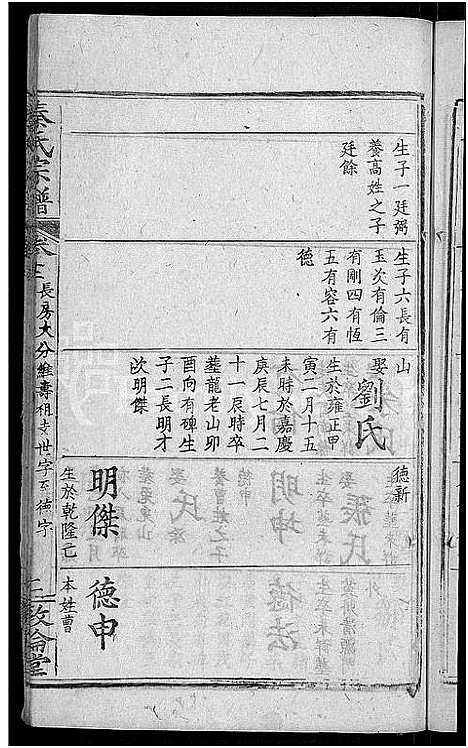 生子一廷弼
養高姓之子
廷餘
生子六長有
玉次有倫三
有剛四有恆
五有容六有
德
山
娶劉氏
生於雍正甲
寅二月十五
未時於嘉慶
庚辰七月二
十一辰時卒
墓龍老山卯
酉向有碑生
子二長明才
次明傑
德新
明傑
生於乾隆己
德申
本姓曹
秦氏宗譜
長房大分維壽祖
世字至德字
敦倫堂